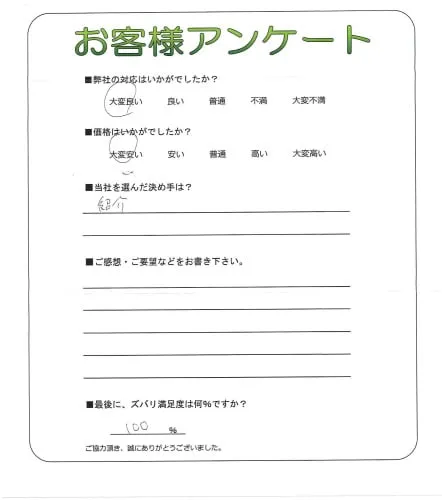 お客様アンケート
■弊社の対応はいかがでしたか？
大変良い 良い 普通 不満 大変不満
■価格はいかがでしたか？
大変安い 安い 普通 高い 大変高い
■当社を選んだ決め手は？
紹介
■ご感想・ご要望などをお書き下さい。
■最後に、ズバリ満足度は何%ですか？
100 %
ご協力頂き、誠にありがとうございました。